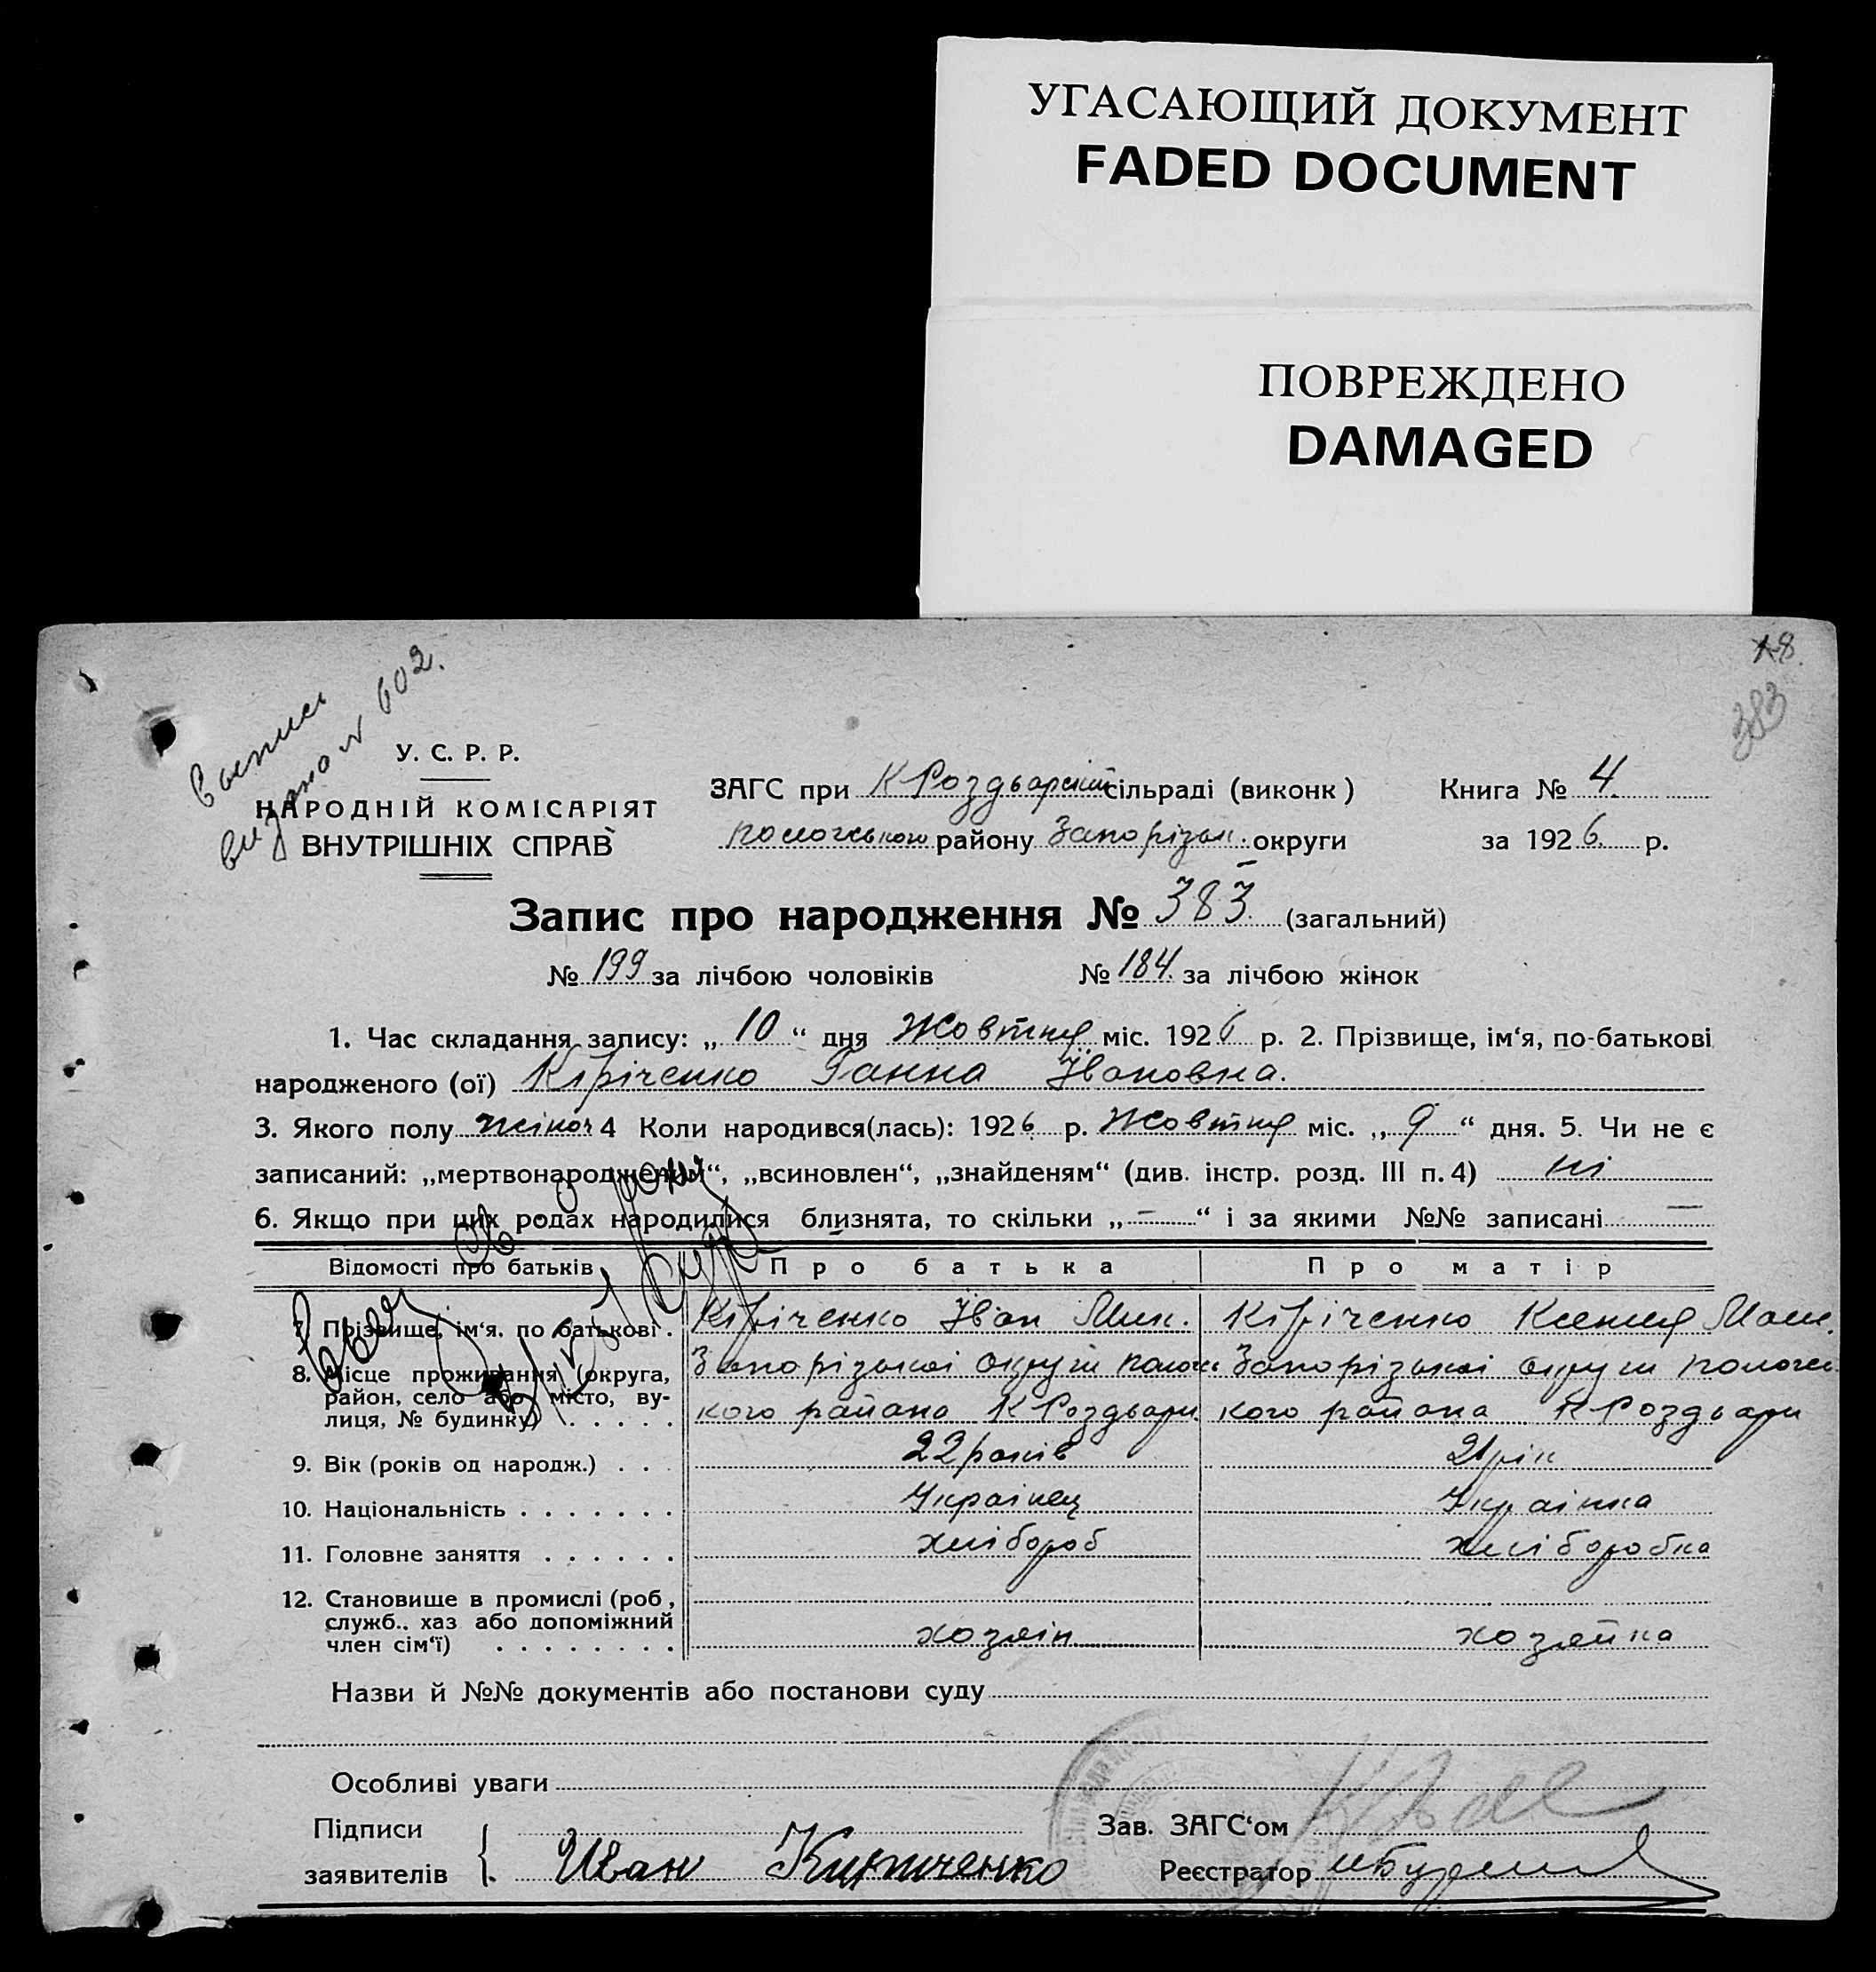 УГАСАЮЩИЙ ДОКУМЕНТ
FADED DOCUMENT
ПОВРЕЖДЕНО
DAMAGED
18.
383
Выпись
видано № 602.
У. С. Р. Р.
НАРОДНІЙ КОМІСАРІЯТ
ВНУТРІШНІХ СПРАВ
ЗАГС при К Роздорській сільраді (виконк)
Книга № 4.
пологського району Запорізьк. округи
за 1926. р.
Запис про народження № 383. (загальний)
№ 199 за лічбою чоловіків № 184. за лічбою жінок
1. Час складання запису: „ 10 “ дня Жовтня міс. 1926 р. 2. Прізвище, ім‘я, по-батькові
народженого (ої) Кіріченко Ганна Івановна.
3. Якого полу жіноч 4 Коли народився(лась): 1926 р. Жовтня міс. „ 9 “ дня. 5. Чи не є
записаний: „мертвонародженим“, „всиновлен“, „знайденям“ (див. інстр. розд. III п. 4) ні
6. Якщо при цих родах народилися близнята, то скільки „ — “ і за якими №№ записані —
Відомості про батьків Про батька Про матір
7. Прізвище, ім‘я. по батькові. Кіріченко Іван Мик. Кіріченко Ксения
8. Місце проживання (округа, Запорізькоі округи Запорізькоі округи
район, село або місто, ву-
лиця, № будинку) кого района К Роздори кого района К Роздори
9. Вік (років од народж.) 22 років 21 рік
10. Національність Украінец Украінка
11. Головне заняття хлібороб хліборобка
12. Становище в промислі (роб,
служб.. хаз або допоміжний
член сім‘ї) хозяін хозяйка
Назви й №№ документів або постанови суду
Особливі уваги
Підписи Зав. ЗАГС‘ом
заявителів Иван Кириченко Реєстратор